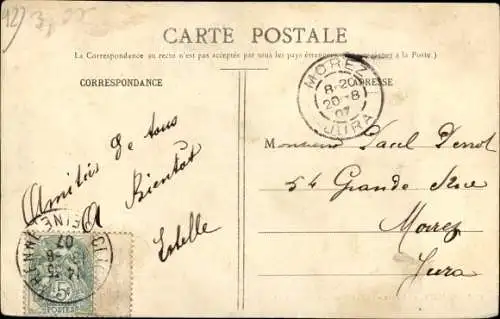 CARTE POSTALE
La Correspondance au recto n'est pas acceptée par tous les pays étrangers à la Poste.)
CORRESPONDANCE
ADRESSE
MOREZ
8-20
20-8
07
JURA
Amitiés de tous
A Bientôt
Estelle
Monsieur Paul
54 Grande Rue
Morez
Jura
CLICHY
SEINE
07
5c
POSTES